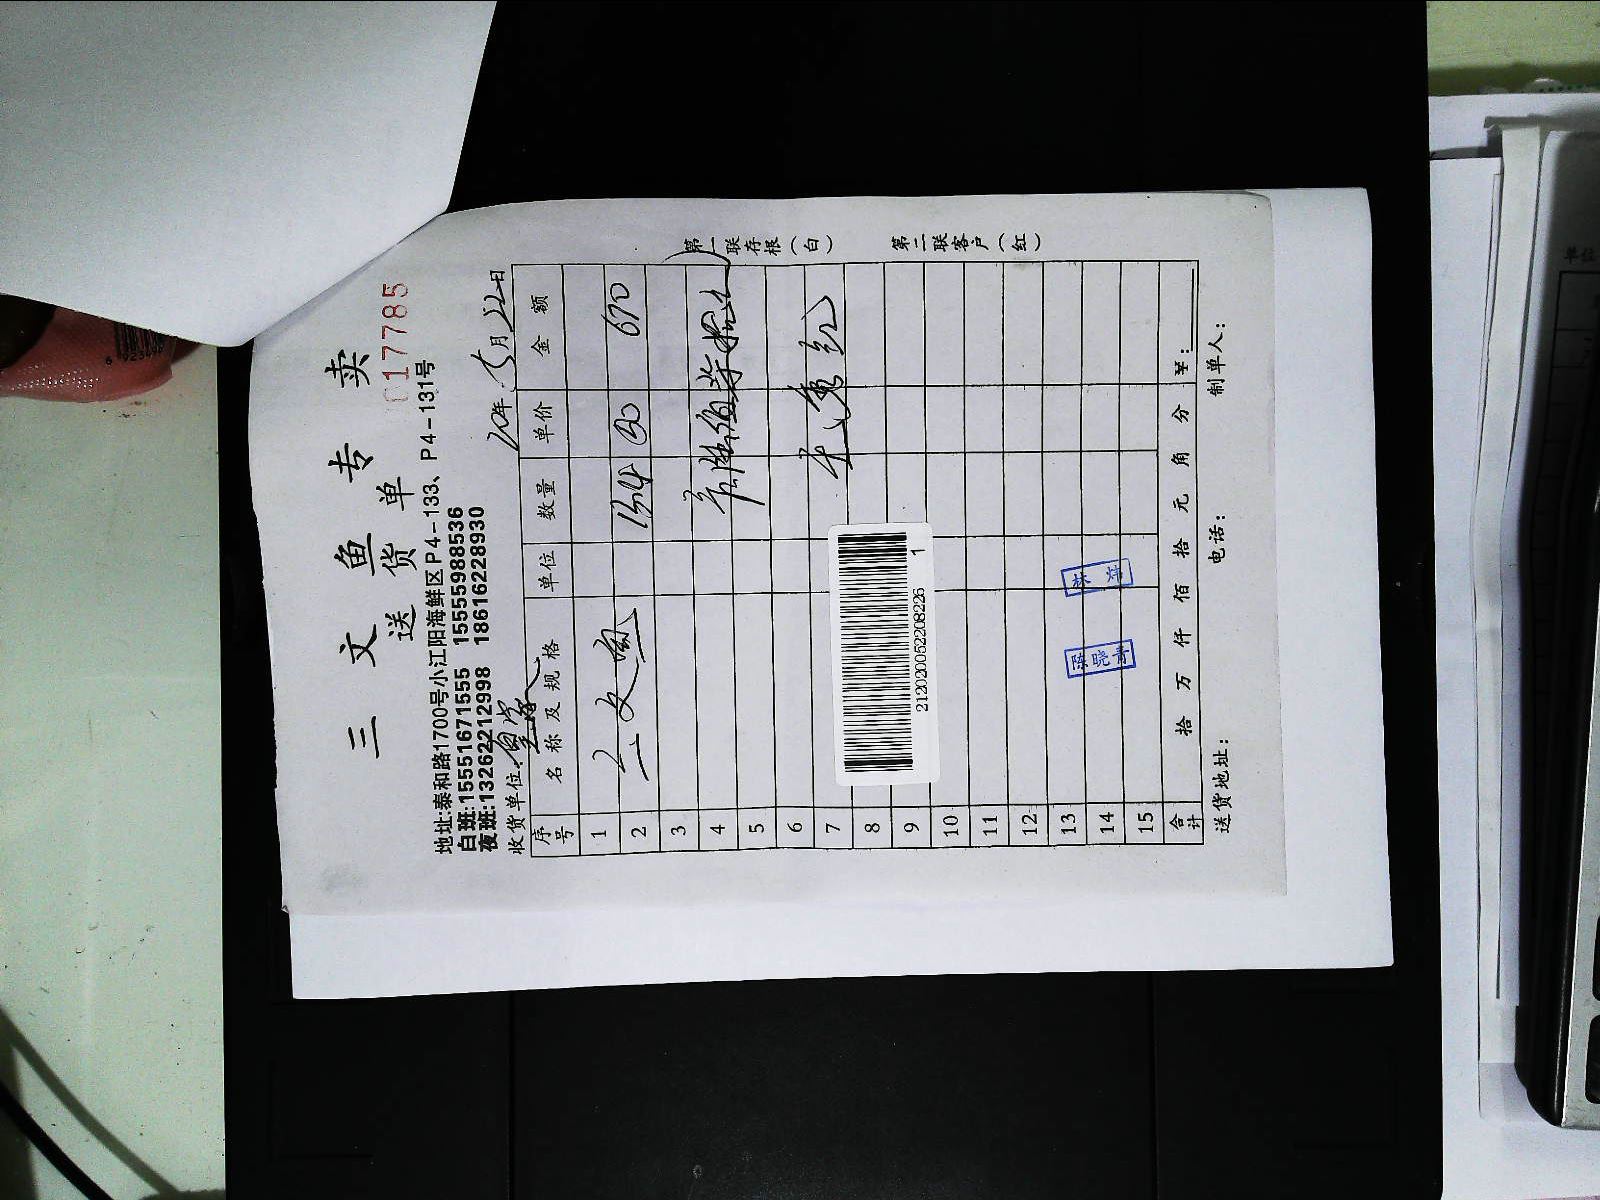 三文鱼专卖
送货单
017785
地址:泰和路1700号小江阳海鲜区P4-133、P4-131号
白班:15551671555 15555988536
夜班:13262212998 18616228930
收货单位: 20年5月22日
序号 名称及规格 单位 数量 单价 金额
1
2 三文鱼 13.4 50 670
3
4
5
6
7
8
9
10
11
12
13
14
15
合计 拾 万 仟 佰 拾 元 角 分 ¥:
送货地址: 电话: 制单人:
第一联存根(白)
第二联客户(红)
2120200522208226 1
陈晓青
林炜